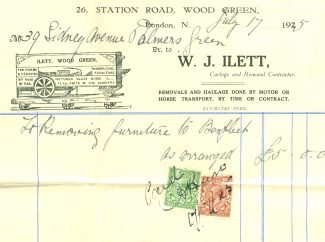 26, STATION ROAD, WOOD GREEN,
London, N. July 17 1925
39 Sidney Avenue Palmers Green
Dr. to
W. J. ILETT,
Cartage and Removal Contractor.
ILETT, WOOD GREEN.
REMOVALS AND HAULAGE DONE BY MOTOR OR
HORSE TRANSPORT, BY TIME OR CONTRACT.
ESTIMATES FREE.
To Removing furniture to
as arranged £5 0. 0